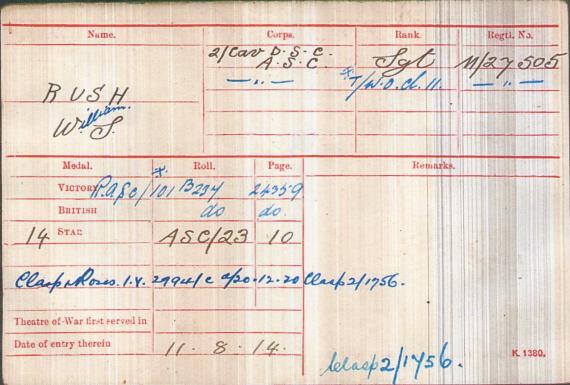 Name. Corps. Rank. Regtl. No.
2/Cav D.S.C. Sgt M/27505
A.S.C.
— " — * T/W.O.cl.II. — " —
RUSH
William.
W. S.
Medal. Roll. Page. Remarks.
*
VICTORY R.A.S.C/101 B234 24359
BRITISH do do.
14 STAR ASC/23 10
Clasp & Roses. I.V. 2994/c d/20.12.20 Clasp 2/1756.
Theatre of War first served in
Date of entry therein 11. 8. 14.
Clasp 2/1756.
K. 1380.